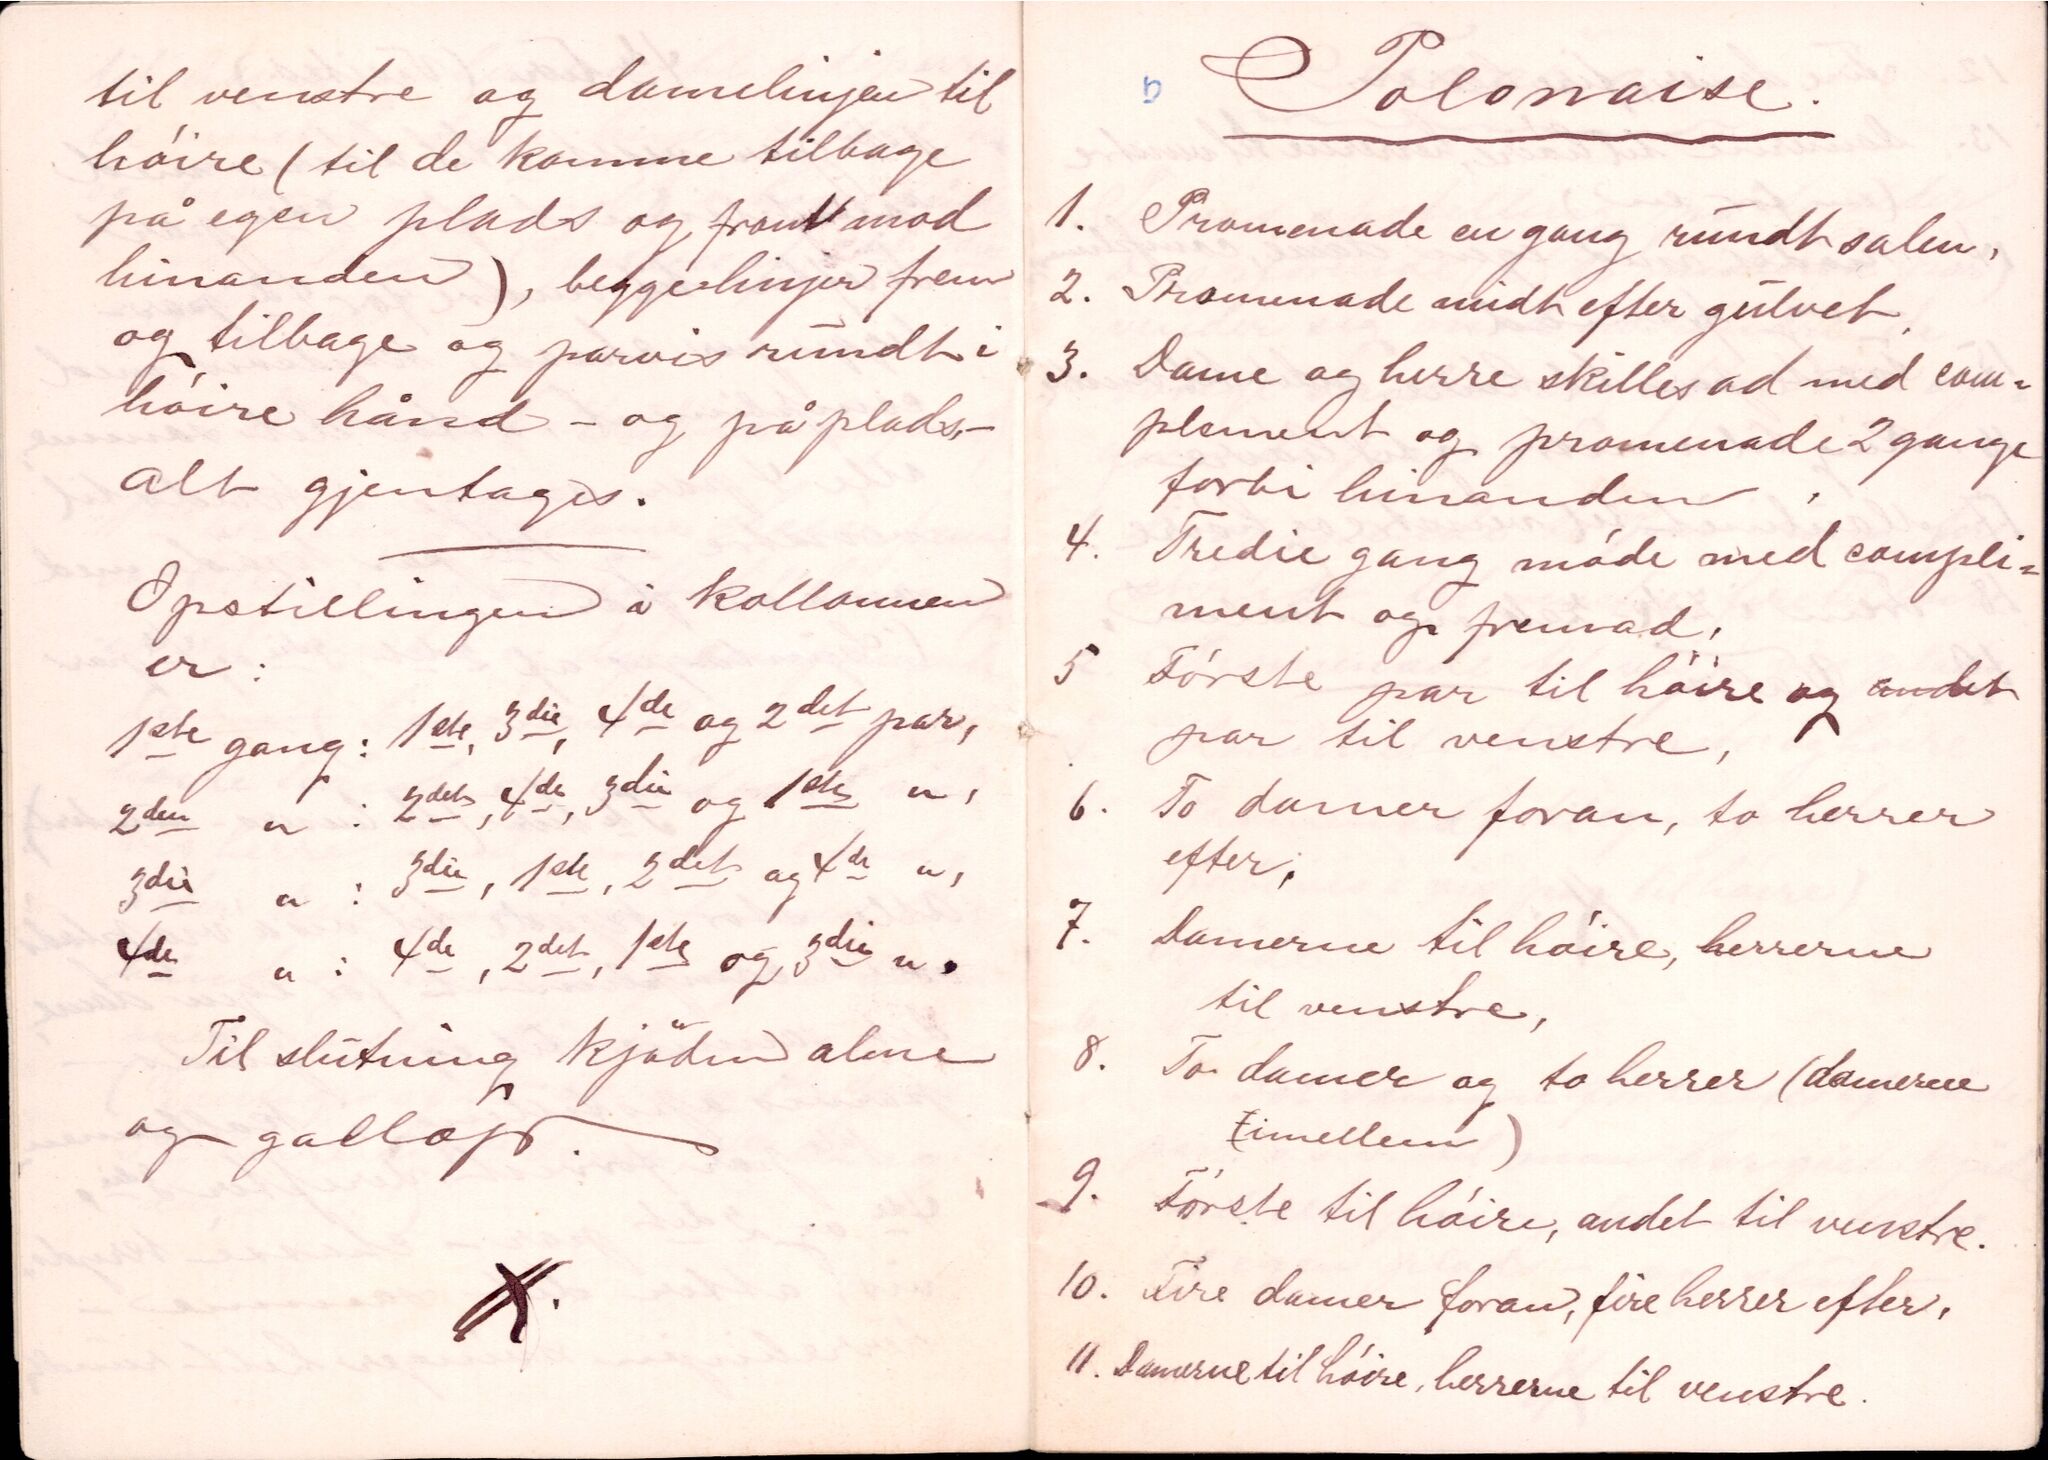 til venstre og damelinjen til
høire (til de komme tilbage
på egen plads og front mod
hinanden), begge linjer frem
og tilbage og parvis rundt i
høire hånd – og på plads, –
alt gjentages.
Opstillingen i kollonnen
er:
1ste gang: 1ste, 3die, 4de og 2det par,
2den " : 2det, 4de, 3die og 1ste ",
3die " : 3die, 1ste, 2det og 4de ",
4de " : 4de, 2det, 1ste og 3die ".
Til slutning kjæden alene
og gallop.
5 Polonaise.
1. Promenade en gang rundt salen,
2. Promenade midt efter gulvet,
3. Dame og herre skilles ad med com=
plement og promenade 2 gange
forbi hinanden,
4. Tredie gang møde med compli=
ment og fremad,
5 Første par til høire og andet
par til venstre,
6. To damer foran, to herrer
efter,
7. Damerne til høire, herrerne
til venstre,
8. To damer og to herrer (damerne
imellem)
9. Første til høire, andet til venstre.
10. Fire damer foran, fire herrer efter,
11. Damerne til høire, herrerne til venstre.